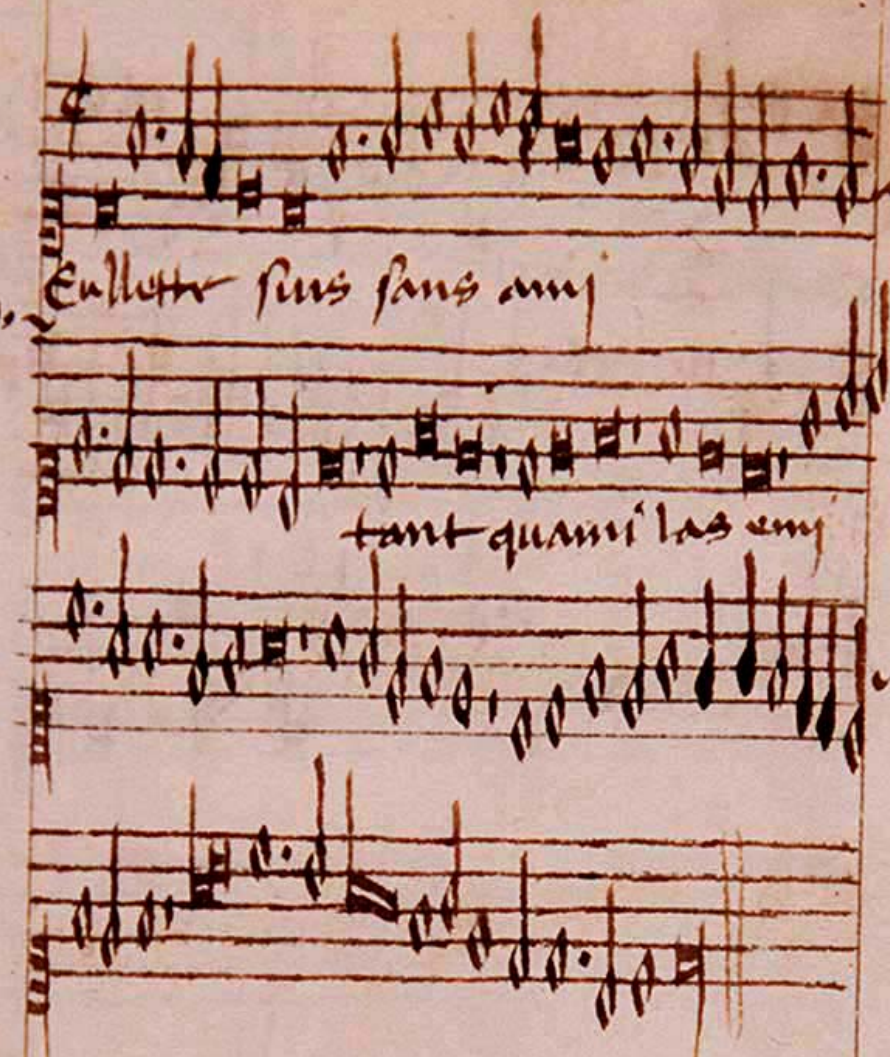 Eullette suis sans ami
tant quami las emi